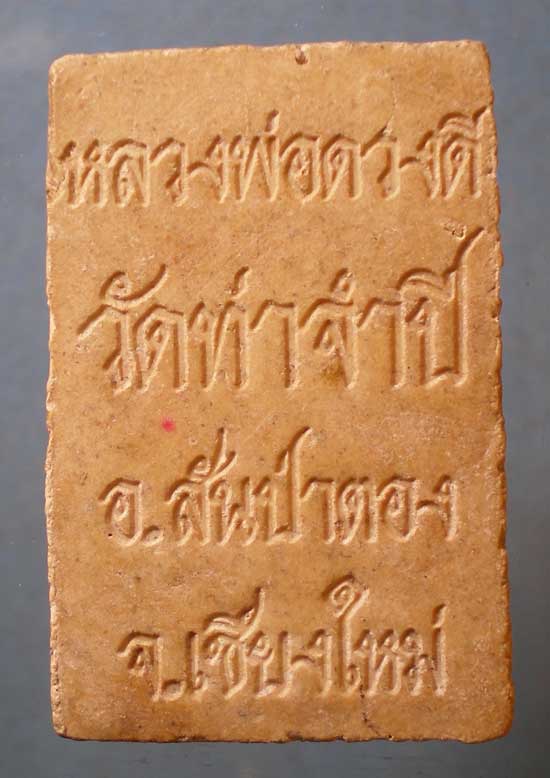 หลวงพ่อดวงดี
วัดท่าจำปี
อ.สันป่าตอง
จ.เชียงใหม่